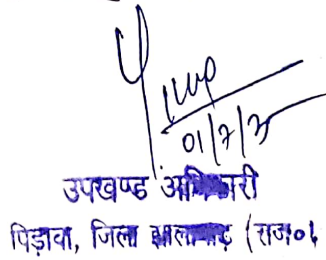 01/7/25
उपखण्ड अधिकारी
पिड़ावा, जिला झालावाड़ (राज०)